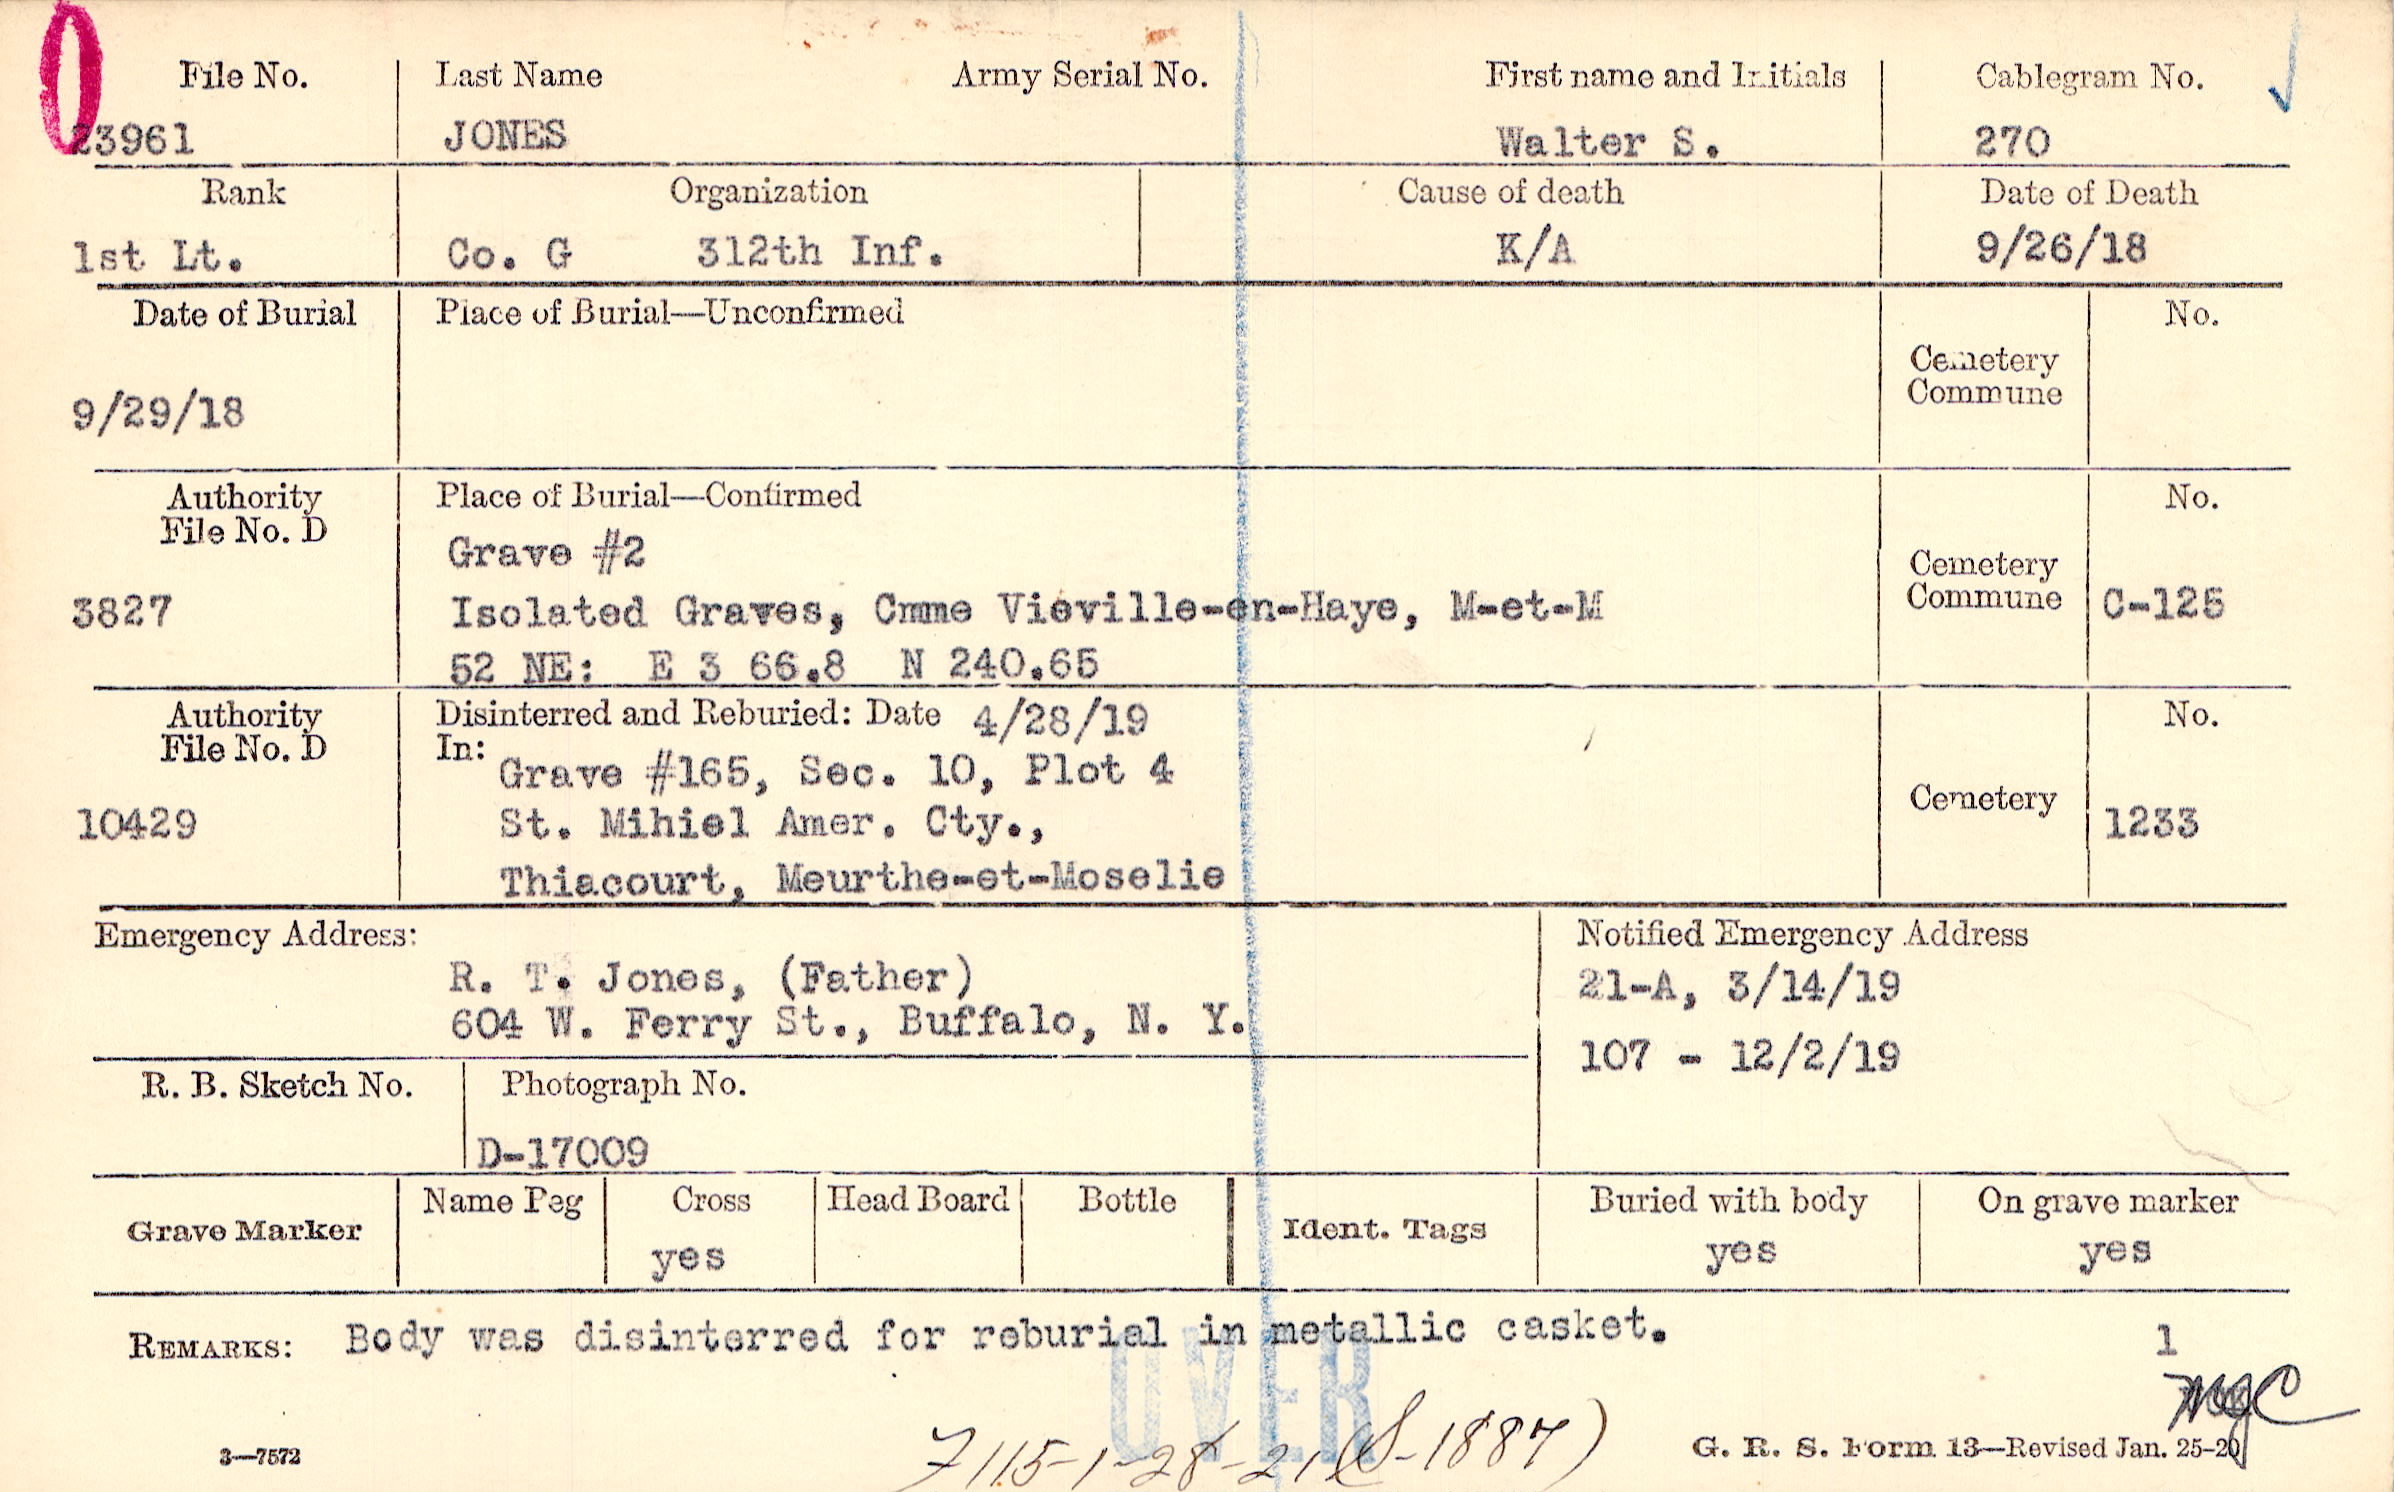 File No. Last Name Army Serial No. First name and Initials Cablegram No.
23961 JONES Walter S. 270
Rank Organization Cause of death Date of Death
1st Lt. Co. G 312th Inf. K/A 9/26/18
Date of Burial Place of Burial—Unconfirmed No.
Cemetery
Commune
9/29/18
Authority Place of Burial—Confirmed No.
File No. D
Grave #2
Cemetery
3827 Isolated Graves, Cmme Vieville-en-Haye, M-et-M Commune C-125
52 NE: E 3 66.8 N 240.65
Authority Disinterred and Reburied: Date 4/28/19 No.
File No. D In:
Grave #165, Sec. 10, Plot 4
10429 St. Mihiel Amer. Cty., Cemetery 1233
Thiacourt, Meurthe-et-Moselie
Emergency Address: Notified Emergency Address
R. T. Jones, (Father) 21-A, 3/14/19
604 W. Ferry St., Buffalo, N. Y.
107 - 12/2/19
R. B. Sketch No. Photograph No.
D-17009
Grave Marker Name Peg Cross Head Board Bottle Ident. Tags Buried with body On grave marker
yes yes yes
REMARKS: Body was disinterred for reburial in metallic casket. 1
OVER
7115-1-28-21 (S-1887)
3—7572 G. R. S. Form 13—Revised Jan. 25-20